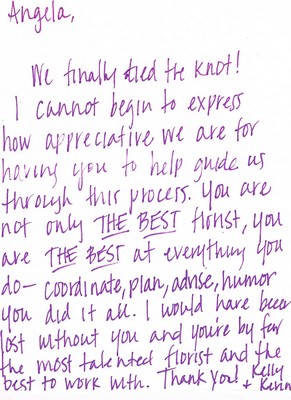 Angela,
We finally tied the knot!
I cannot begin to express
how appreciative we are for
having you to help guide us
through this process. You are
not only THE BEST florist, you
are THE BEST at everything you
do- coordinate, plan, advise, humor
you did it all. I would have been
lost without you and you're by far
the most talented florist and the
best to work with. Thank you! Kelly
+ Kevin